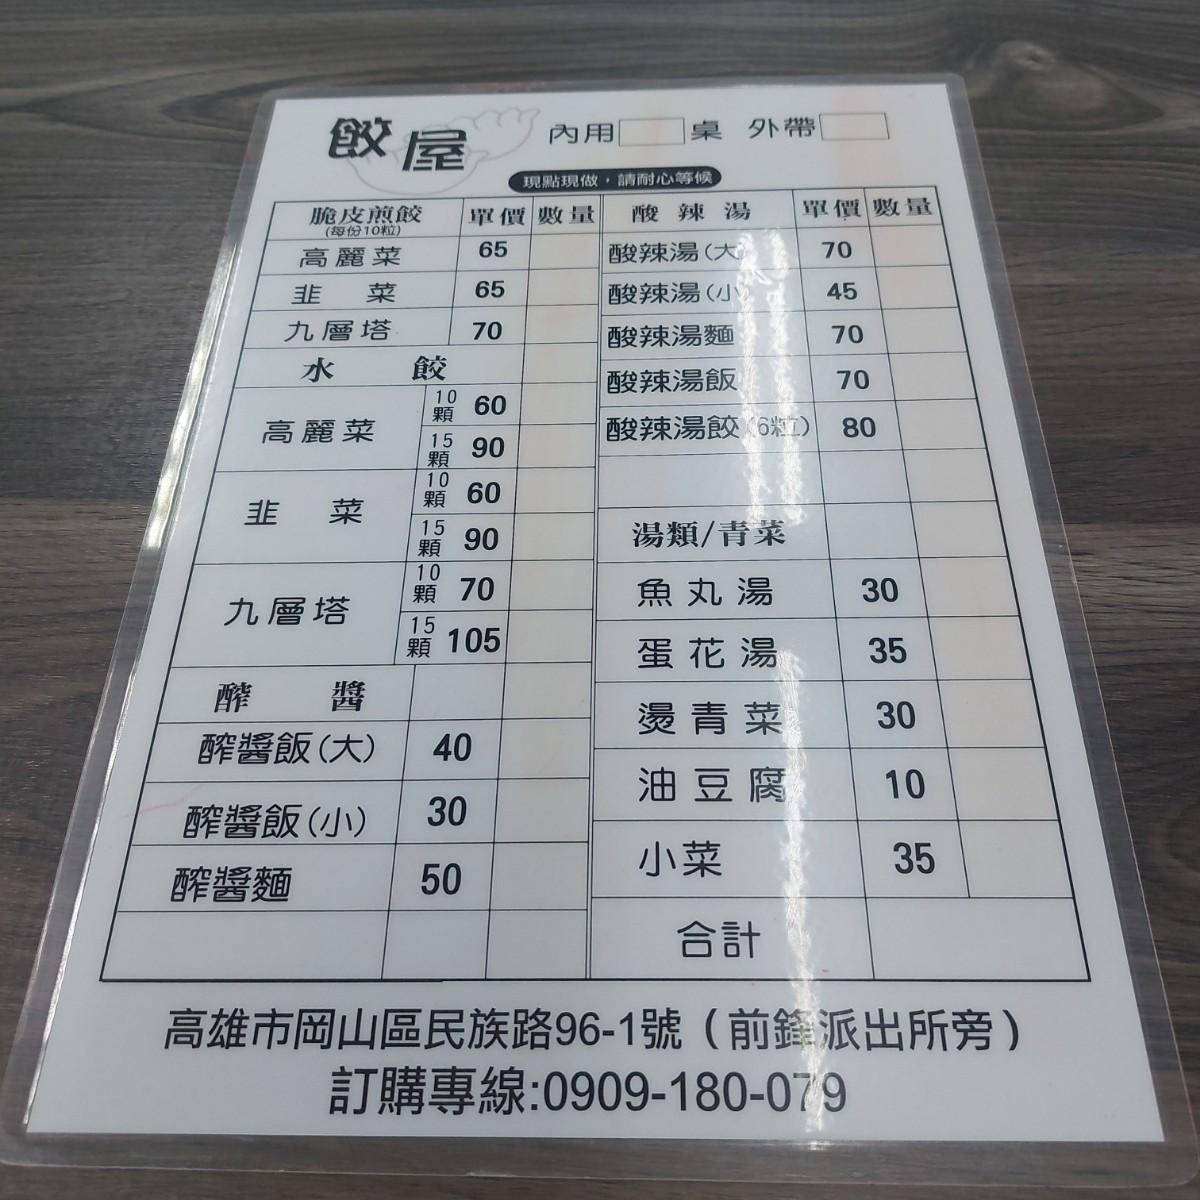 餃屋 內用 桌 外帶
現點現做，請耐心等候
脆皮煎餃 單價 數量
(每份10粒)
高麗菜 65
韭菜 65
九層塔 70
水餃
高麗菜 10顆 60
15顆 90
韭菜 10顆 60
15顆 90
九層塔 10顆 70
15顆 105
醡醬
醡醬飯(大) 40
醡醬飯(小) 30
醡醬麵 50
酸辣湯 單價 數量
酸辣湯(大) 70
酸辣湯(小) 45
酸辣湯麵 70
酸辣湯飯 70
酸辣湯餃(6粒) 80
湯類/青菜
魚丸湯 30
蛋花湯 35
燙青菜 30
油豆腐 10
小菜 35
合計
高雄市岡山區民族路96-1號（前鋒派出所旁）
訂購專線:0909-180-079